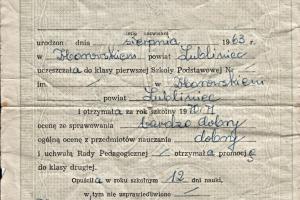 urodzon dnia sierpnia 1963 r.
w powiat Lubliniec
uczęszczała do klasy pierwszej Szkoły Podstawowej Nr /
im / w
powiat Lubliniec
i otrzymała za rok szkolny 1970/71
ocenę ze sprawowania bardzo dobry
ogólną ocenę z przedmiotów nauczania dobry
i uchwałą Rady Pedagogicznej / otrzymała promocję
do klasy drugiej.
Opuściła w roku szkolnym 12 dni nauki,
w tym nie usprawiedliwiono /